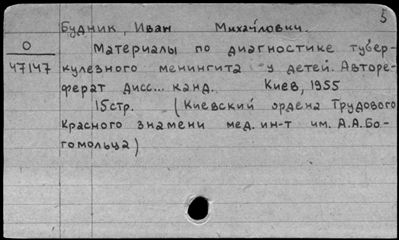 5
Будник, Иван Михайлович.
О
47147
Материалы по диагностике тубер-
кулезного менингита у детей. Авторе-
ферат дисс... канд. Киев, 1955
15стр. (Киевский ордена Трудового
Красного знамени мед. ин-т им. А.А.Бо-
гомольца)